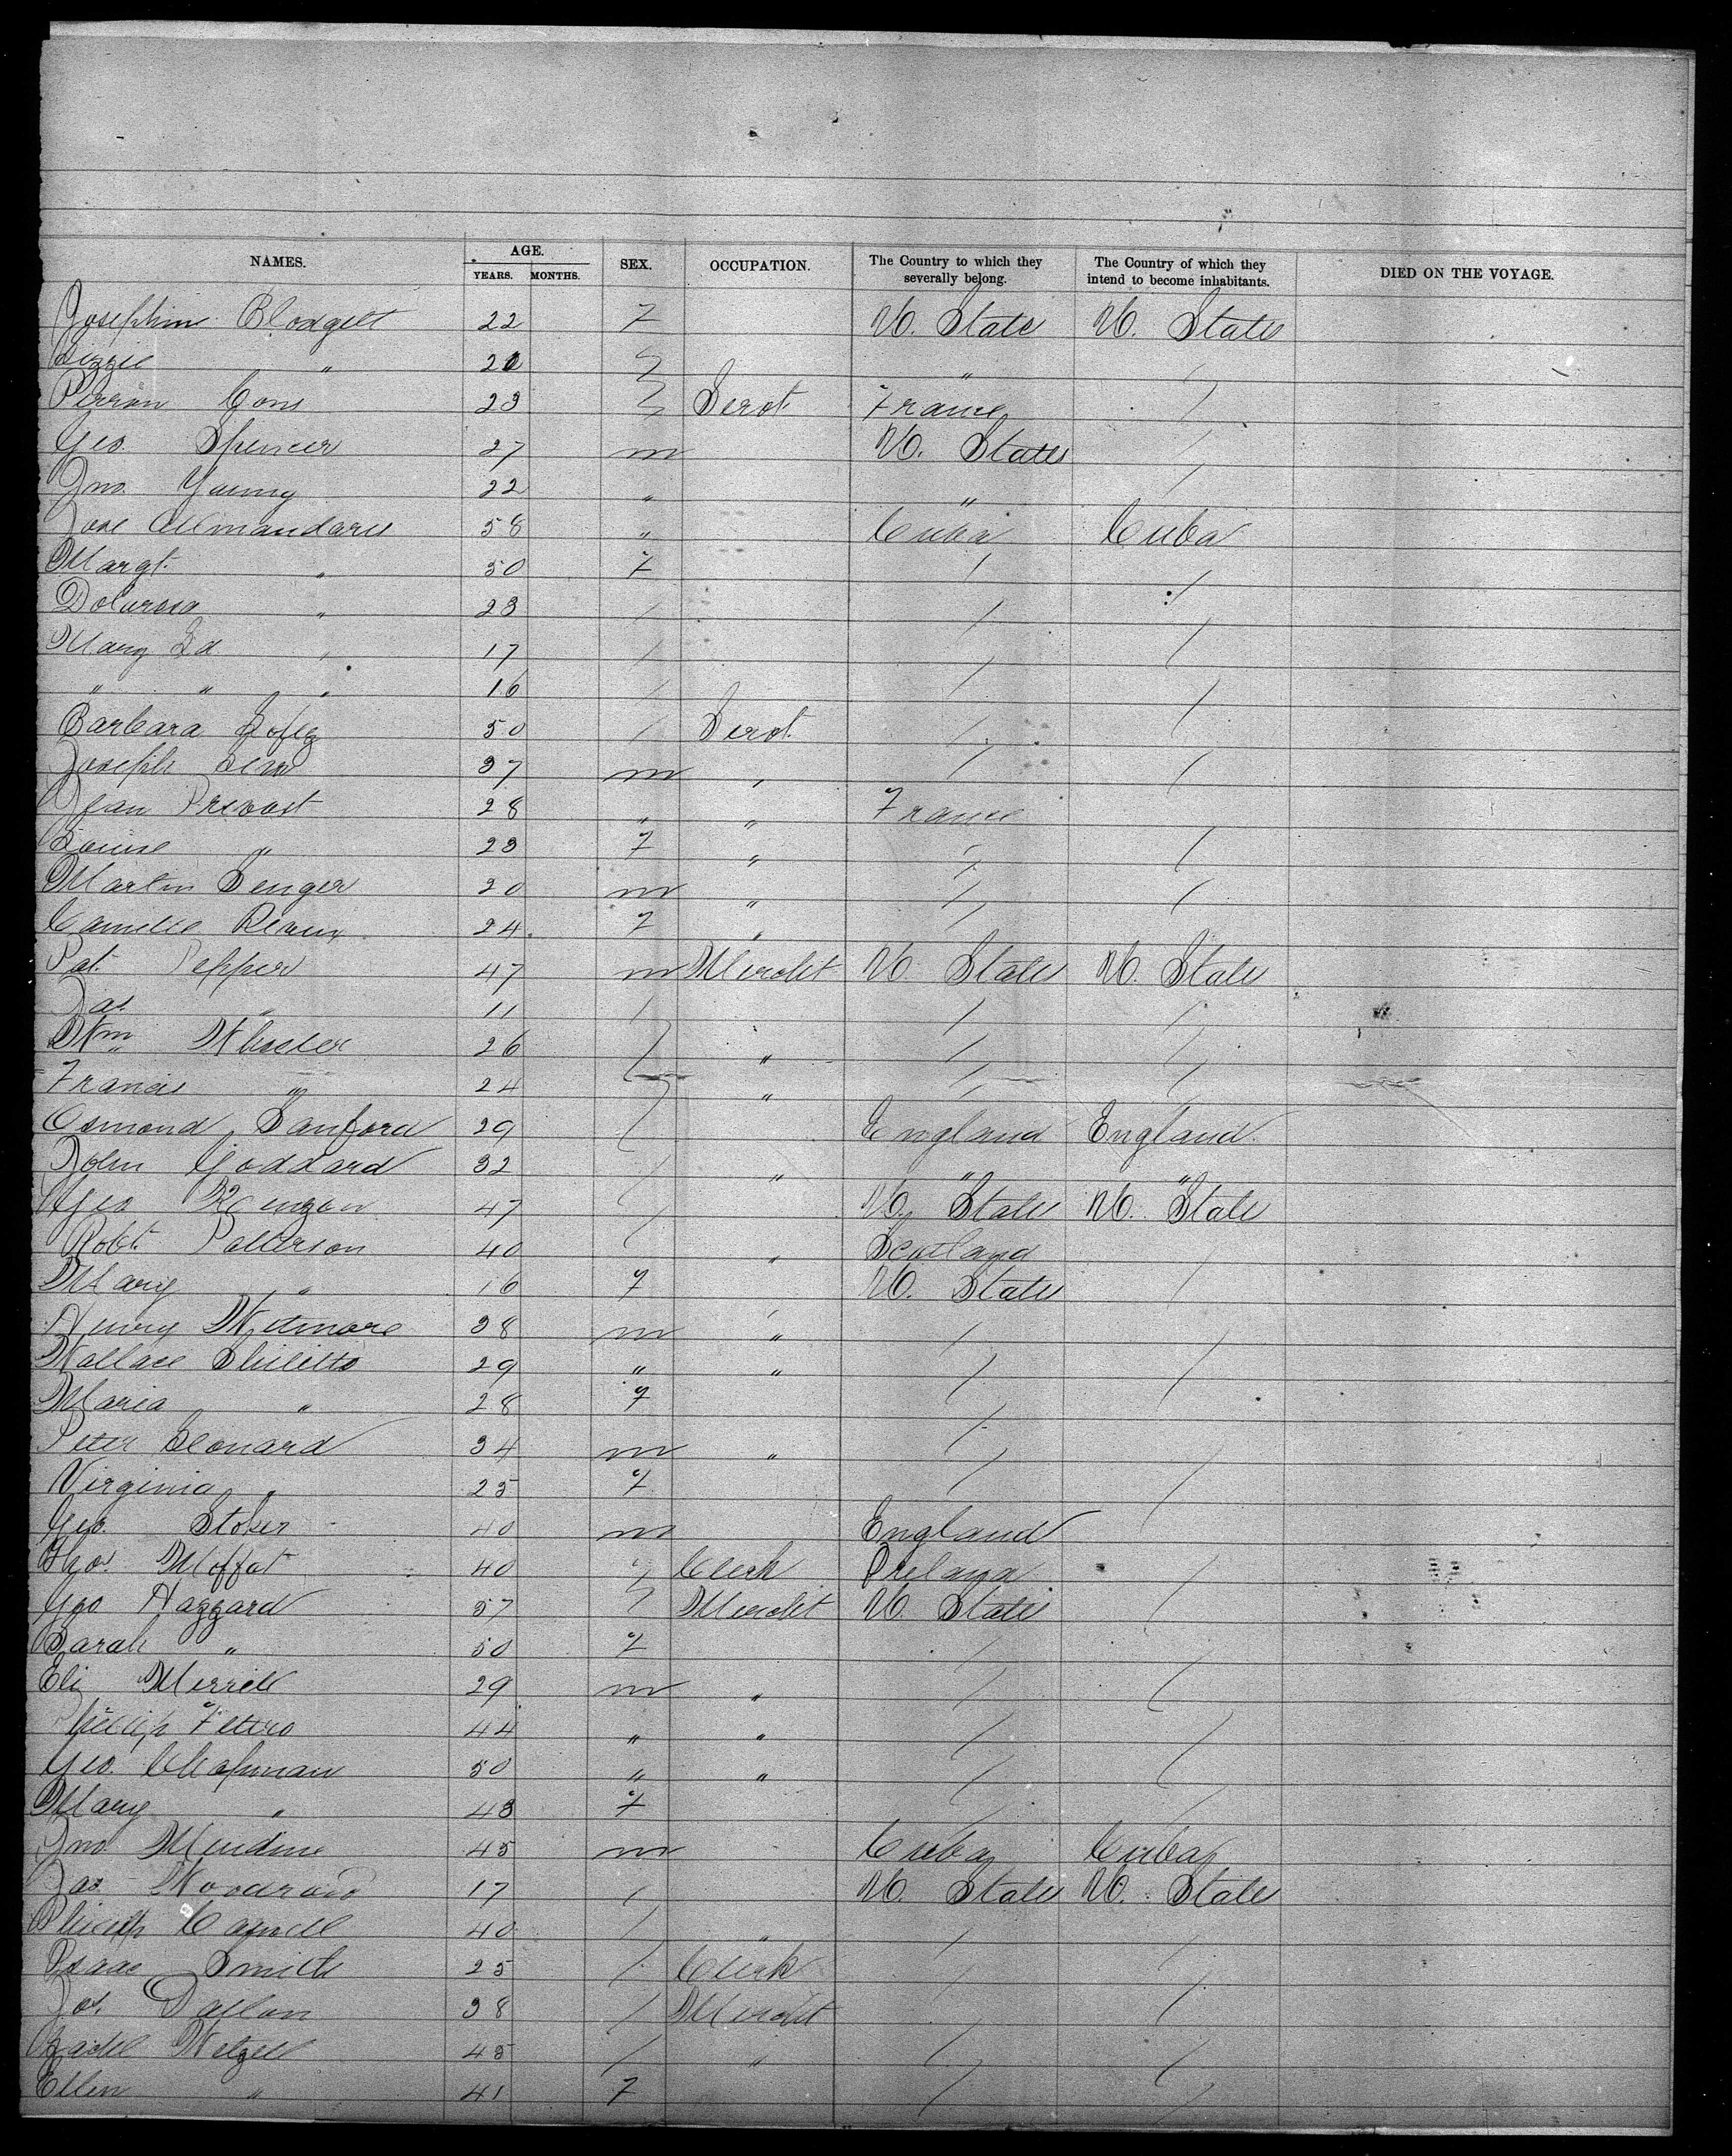 NAMES. AGE. YEARS. MONTHS. SEX. OCCUPATION. The Country to which they severally belong. The Country of which they intend to become inhabitants. DIED ON THE VOYAGE.
Josephine Blodgett 22 F U. States U. States
Lizzie " 20 " "
23 Servt. France
Geo. Spencer 27 m U. States
Jno. Young 22 " "
Jose Almandares 58 " Cuba Cuba
Margt. " 50 F
Dolarosa " 23
Mary Ld " 17
" " " 16
Barbara Lopez 50 Servt.
Joseph 37 m "
Jean Prevost 28 " " France
Louise " 23 F "
Martin Senger 20 m "
Camille 24 F "
Pat. Pepper 47 m Mercht U States U. States
Jas. " 11
Wm Wheeler 26 "
Francis " 24 "
Osmond Sanford 29 England England
John Goddard 32 " " "
Geo Kenzon 47 U. States U. States
Robt. Patterson 40 " Scotland
Mary " 16 F U. States
Henry Wetmore 38 m "
Wallace Shillito 29 " "
Maria " 28 F
Peter Leonard 34 m "
Virginia " 25 F
Geo. Stoker 40 m England
Thos. Moffat 40 " Clerk Ireland
Geo Haggard 57 Mercht U. States
Sarah " 50 F
Eli Merrill 29 m "
Phillip 44 " "
Geo. Chapman 50 " "
Mary " 43 F
Jno. 45 m Cuba Cuba
Jas. Woodrow 17 U. States U. States
Phillip 40 "
Isaac Smith 25 Clerk
Jos. Dallon 38 Mercht
Wetzell 45 "
Ellen " 41 F